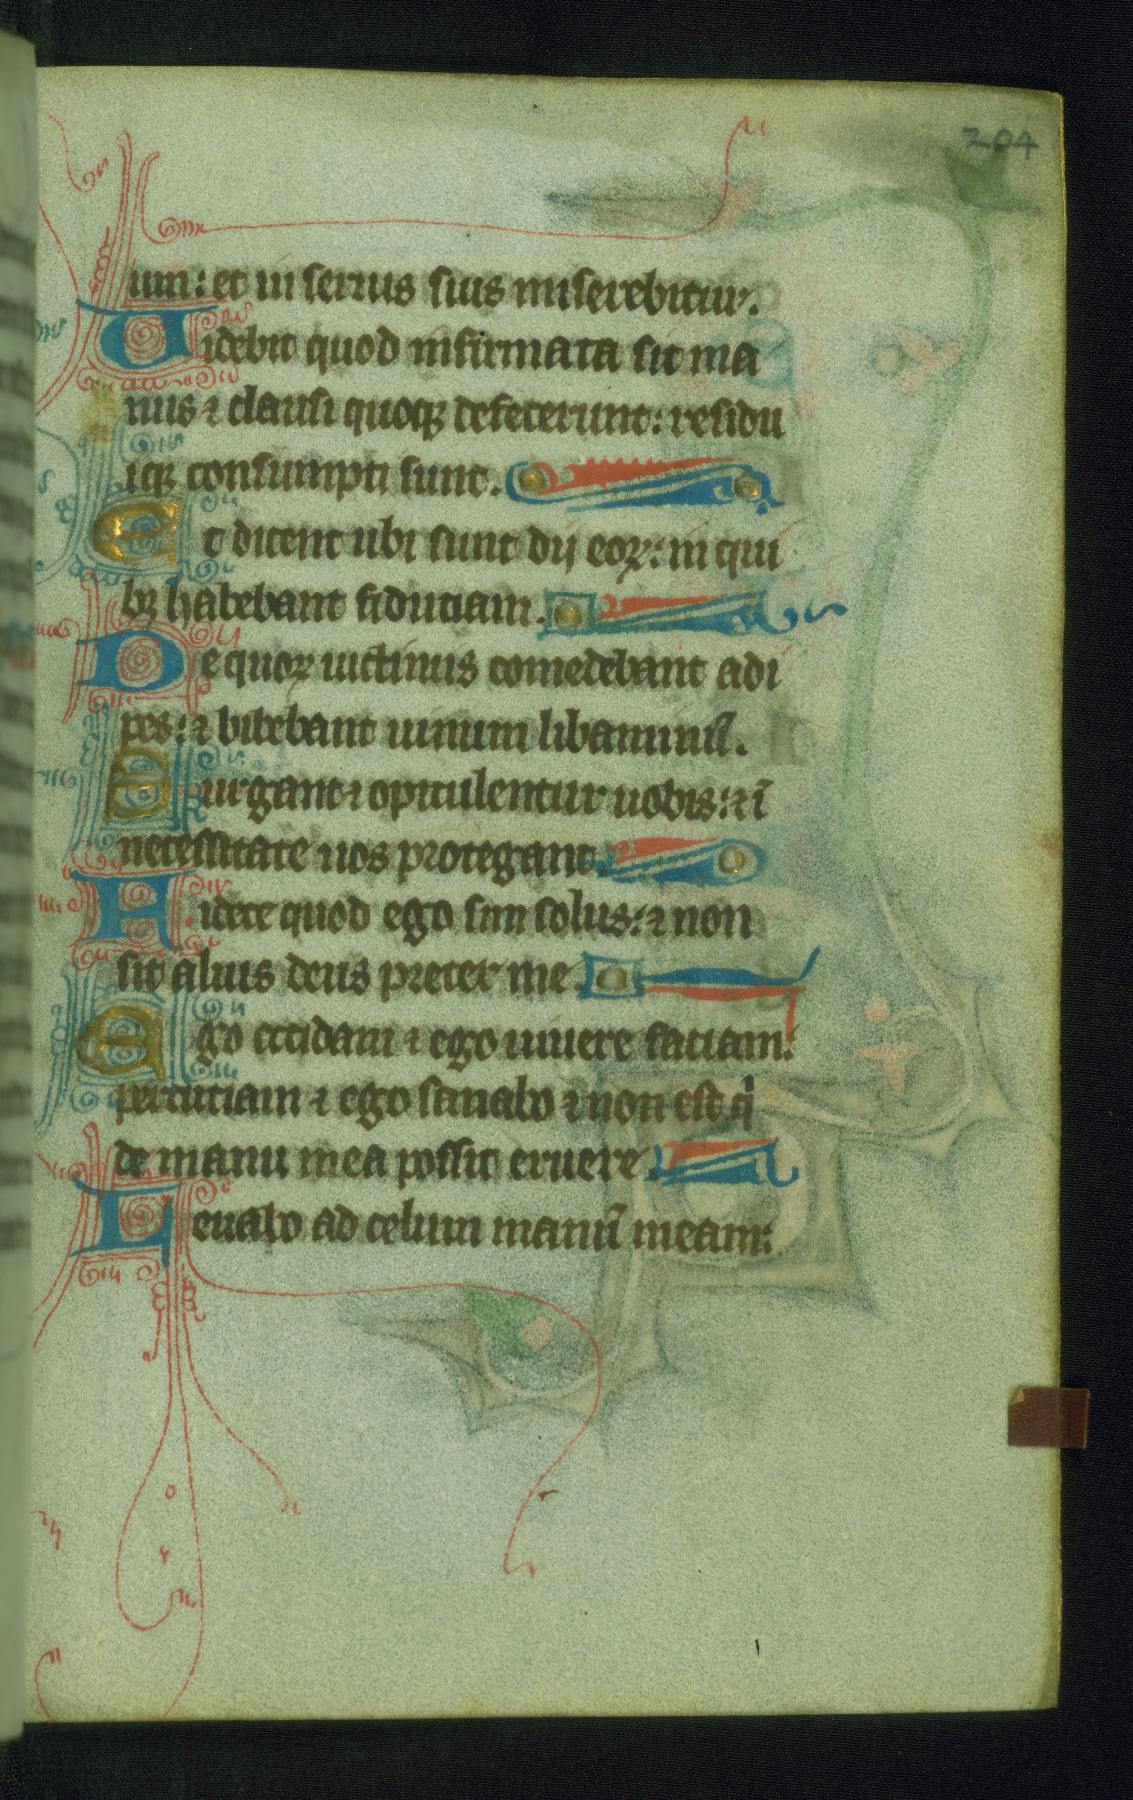 204
um: et in seruis suis miserebitur.
Uidebit quod infirmata sit ma
nus ⁊ clausi quoqꝫ defecerunt: residu
iqꝫ consumpti sunt.
Et dicent ubi sunt dij eoꝝ: in qui
bꝫ habebant fiduciam.
De quoꝝ uictimis comedebant adi
pes: ⁊ bibebant uinum libaminū.
Surgant ⁊ opitulentur uobis: ⁊ ī
necessitate uos protegant.
Uidete quod ego sim solus: ⁊ non
sit alius deus preter me.
Ego occidam ⁊ ego uiuere faciam:
percutiam ⁊ ego sanabo ⁊ non est q̇
de manu mea possit eruere.
Leuabo ad celum manū meam: